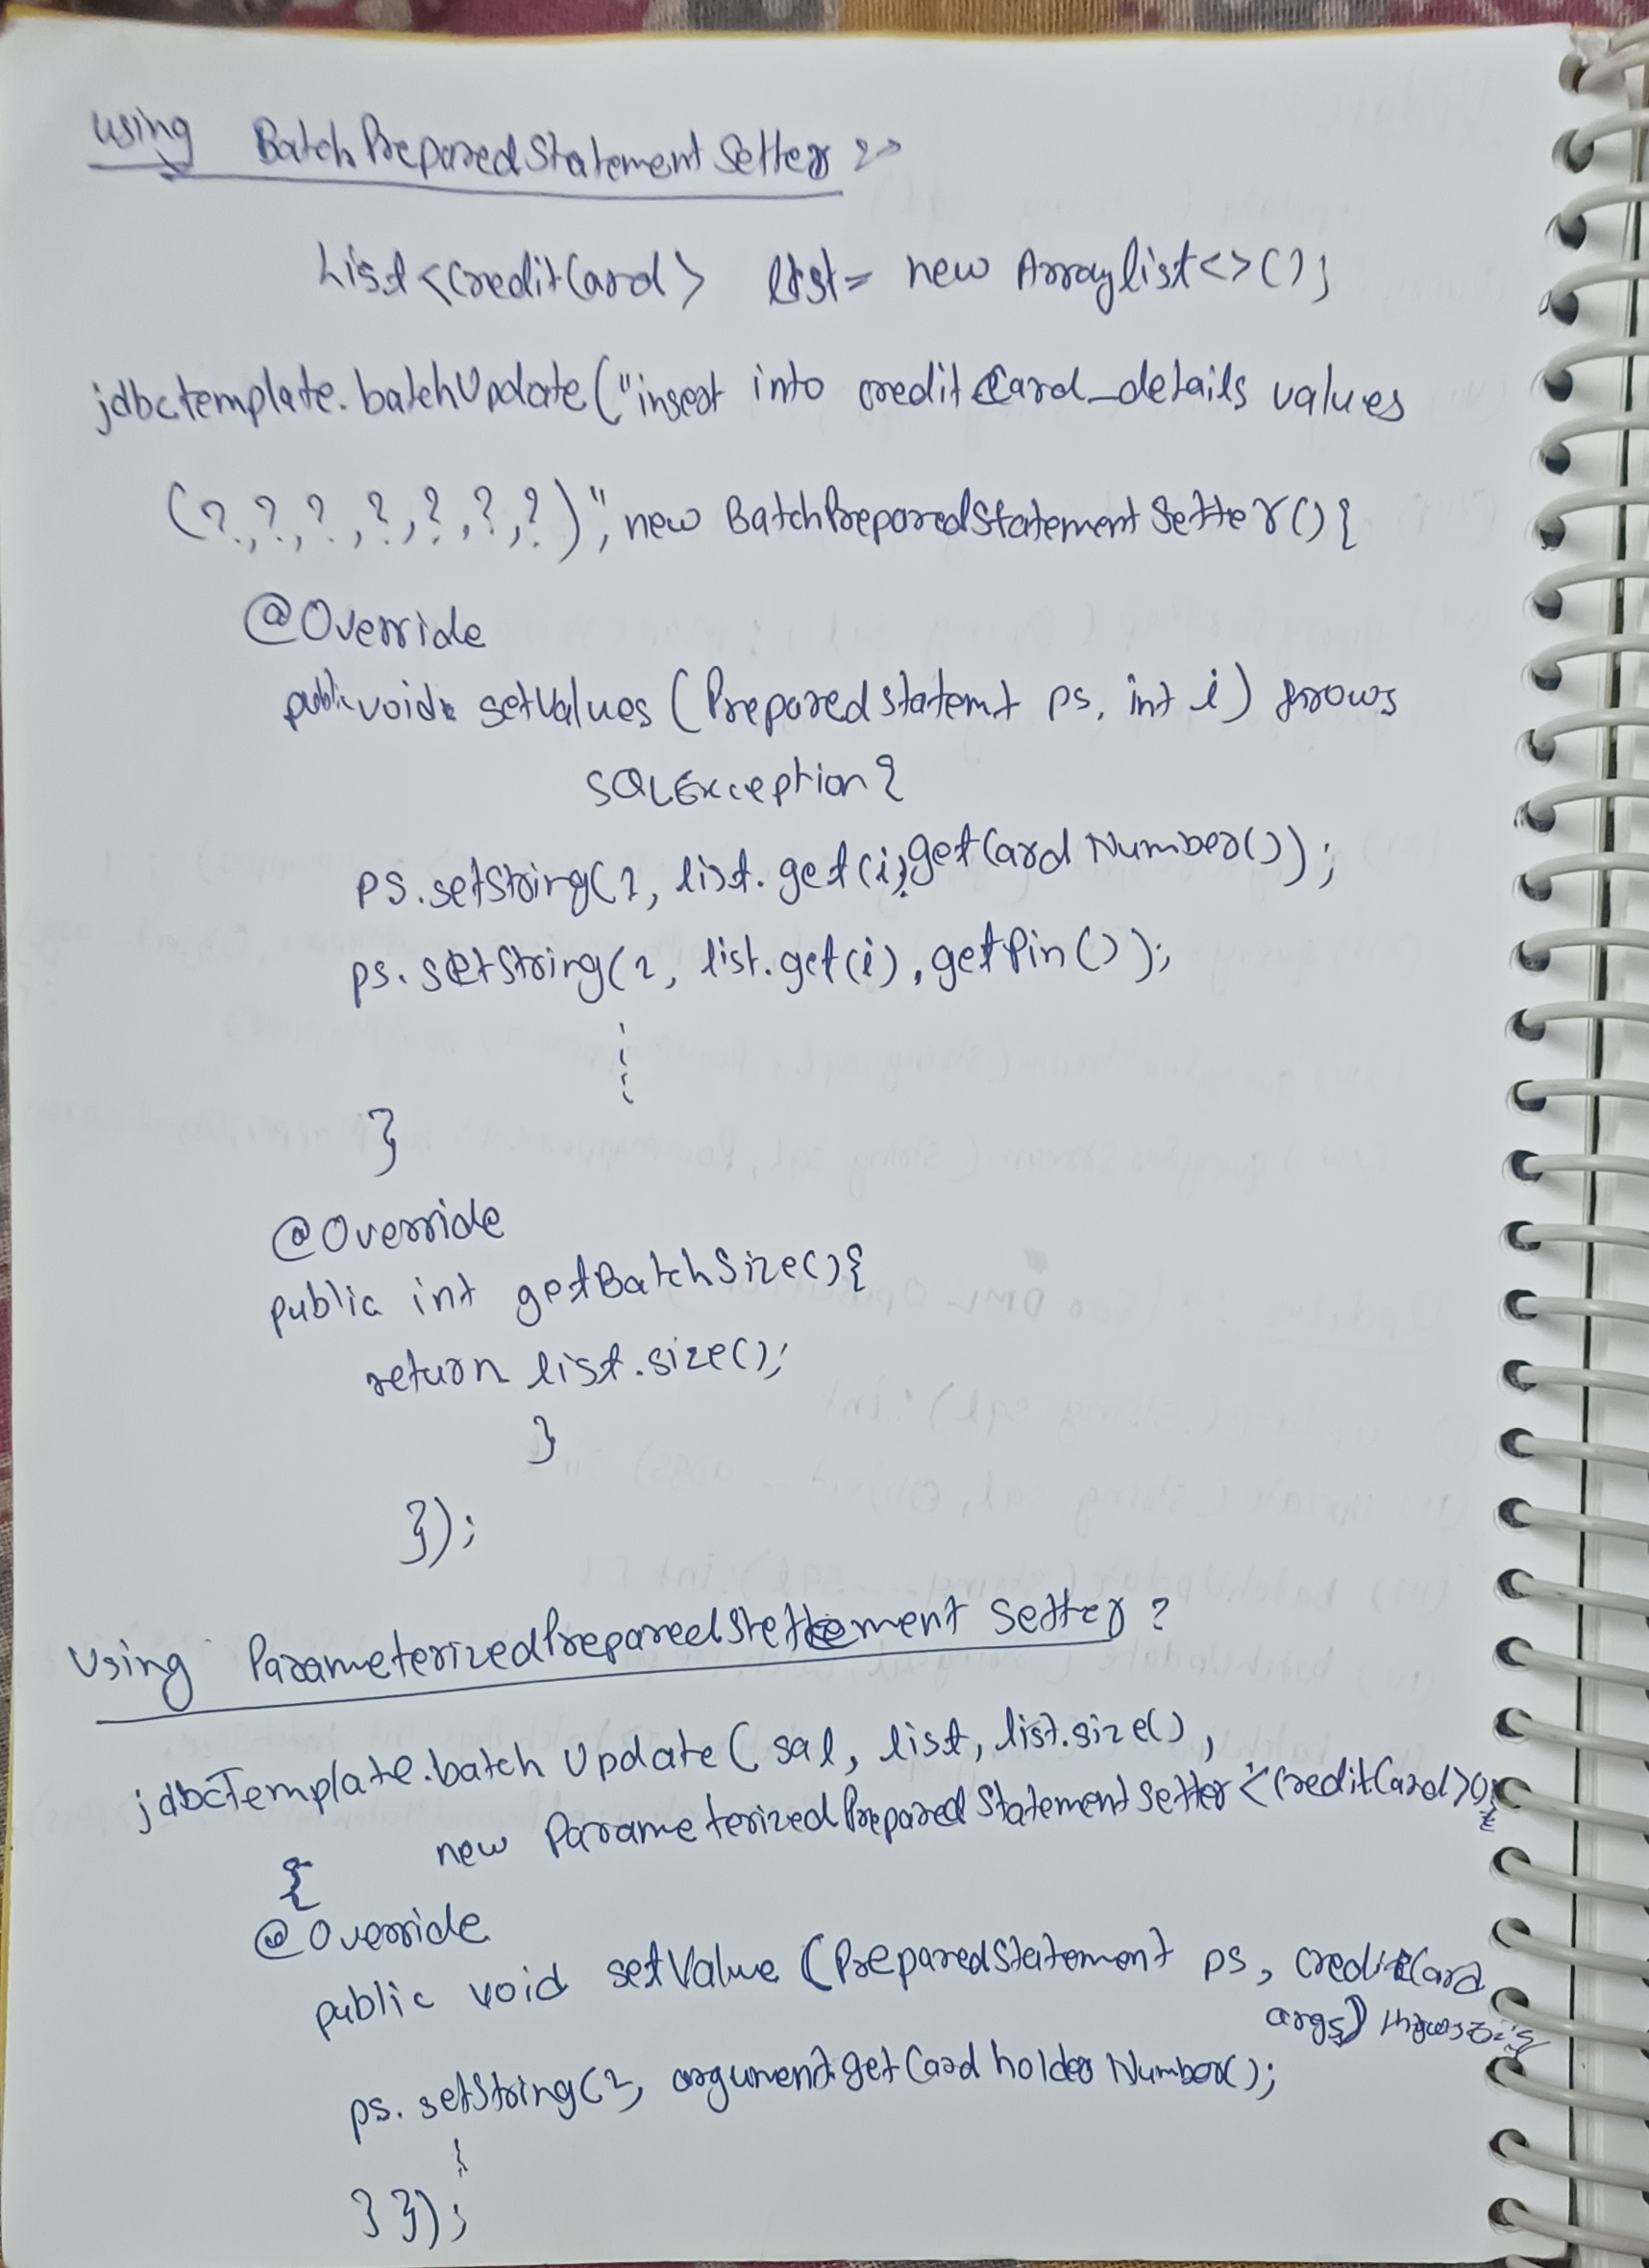 using BatchPreparedStatementSetter :-
List<CreditCard> list= new Arraylist<>();
jdbctemplate.batchUpdate("insert into creditCard_details values
(?,?,?,?,?,?,?)", new BatchPreparedStatementSetter(){
@Override
public void setValues (Preparedstatemt ps, int i) throws
SQLException{
ps.setString(1, list.get(i).getCardNumber());
ps.setString(2, list.get(i).getPin());
}
@Override
public int getBatchSize(){
return list.size();
}
});
Using ParameterizedPreparedStatement Setter ?
jdbcTemplate.batchUpdate( sql, list, list.size(),
new ParameterizedPreparedStatementSetter<CreditCard>()
{
@Override
public void setValue (PreparedStatement ps, CreditCard
args)
ps.setString(1, argument.getCardholderNumber();
}});